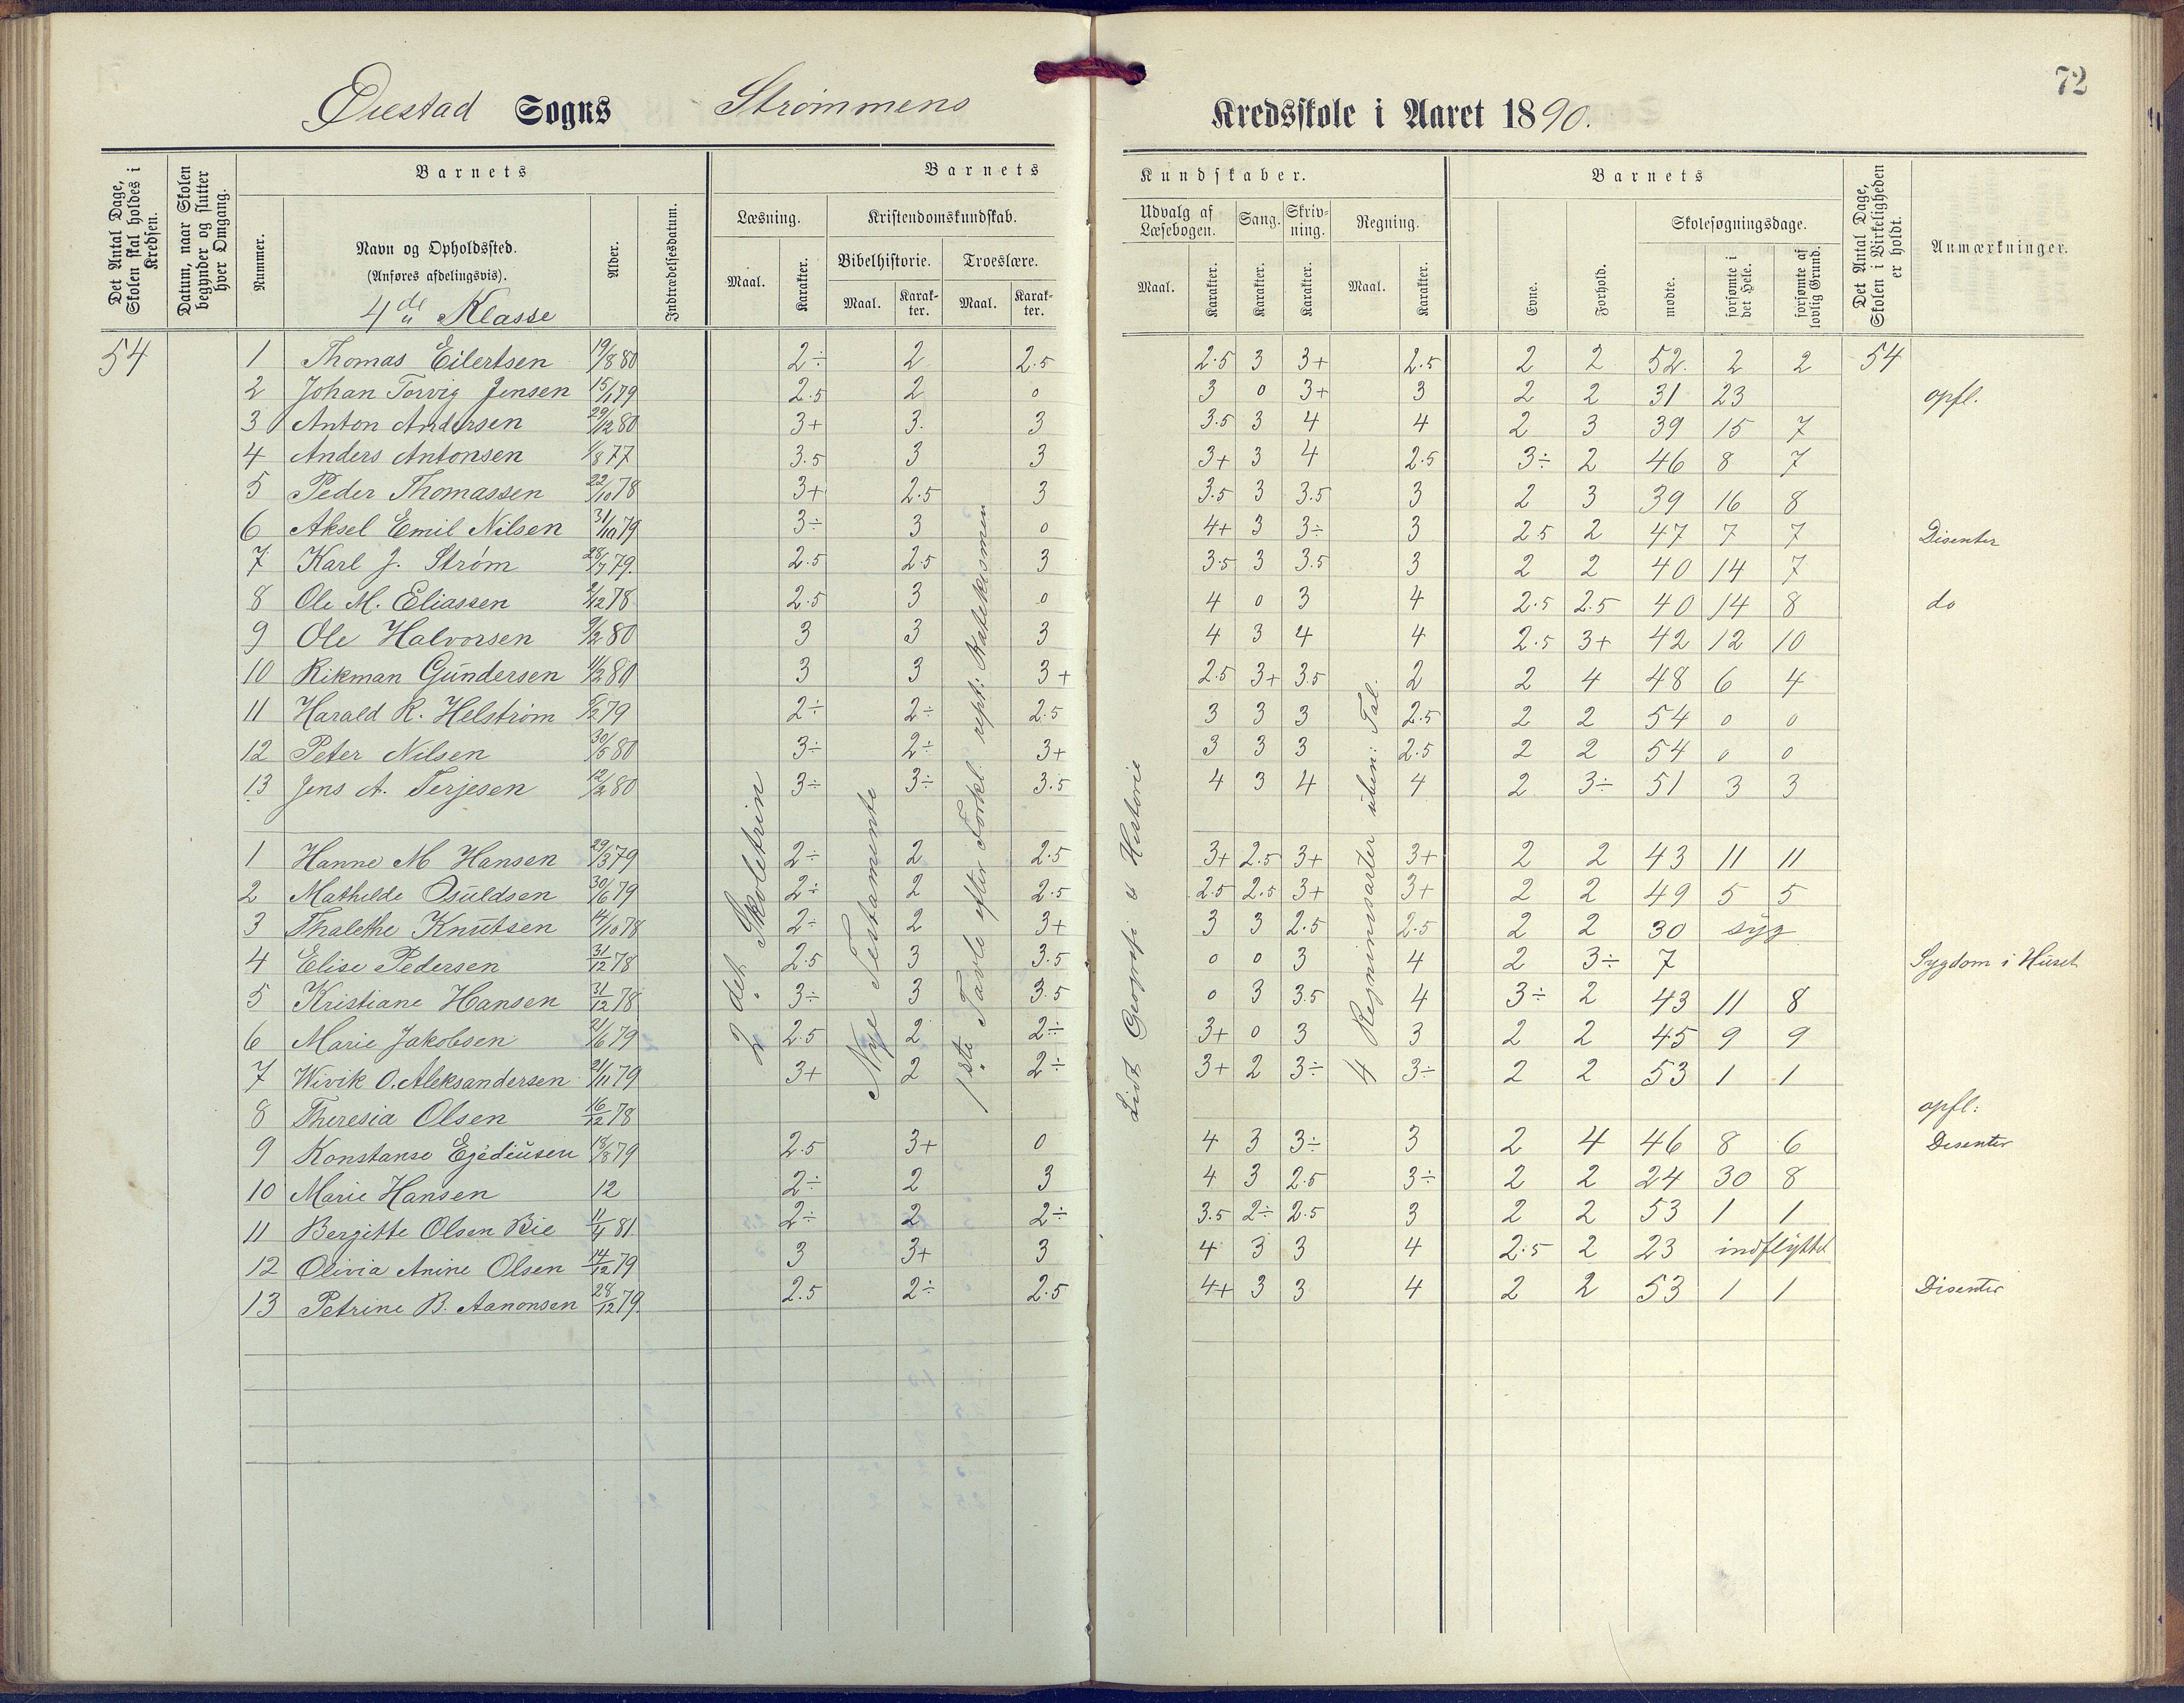 72
Øiestad Sogns Strømmens Kredsskole i Aaret 1890.
Det Antal Dage, Skolen skal holdes i Kredsen.
Datum, naar Skolen begynder og slutter hver Omgang.
Barnets
Nummer.
Navn og Opholdssted.
(Anføres afdelingsvis).
4de Klasse
Alder.
Indtrædelsesdatum.
Barnets Kundskaber.
Læsning.
Maal.
Karakter.
Kristendomskundskab.
Bibelhistorie.
Maal.
Karakter.
Troeslære.
Maal.
Karakter.
Udvalg af Læsebogen.
Maal.
Karakter.
Sang.
Karakter.
Skrivning.
Karakter.
Regning.
Maal.
Karakter.
Barnets
Evne.
Forhold.
Skolesøgningsdage.
mødte.
forsømte i det Hele.
forsømte af lovlig Grund.
Det Antal Dage, Skolen i Virkeligheden er holdt.
Anmærkninger.
54 1 Thomas Eilertsen 19/8 80 2÷ 2 2.5 2.5 3 3+ 2.5 2 2 52. 2 2 54
2 Johan Torvig Jensen 15/1 79 2.5 2 0 3 0 3+ 3 2 2 31 23 opfl.
3 Anton Andersen 29/12 80 3+ 3. 3 3.5 3 4 4 2 3 39 15 7
4 Anders Antonsen 1/8 77 3.5 3 3 3+ 3 4 2.5 3÷ 2 46 8 7
5 Peder Thomassen 22/10 78 3+ 2.5 3 3.5 3 3.5 3 2 3 39 16 8
6 Aksel Emil Nilsen 31/10 79 3÷ 3 0 4+ 3 3÷ 3 2.5 2 47 7 7 Disenter
7 Karl J. Strøm 28/7 79. 2.5 2.5 3 3.5 3 3.5 3 2 2 40 14 7
8 Ole M. Eliassen 2/12 78 2.5 3 0 4 0 3 4 2.5 2.5 40 14 8 do
9 Ole Halvorsen 9/2 80 3 3 3 4 3 4 4 2.5 3+ 42 12 10
10 Rikman Gundersen 11/2 80 3 3 3+ 2.5 3+ 3.5 2 2 4 48 6 4
11 Harald R. Helstrøm 5/2 79 2÷ 2÷ 2.5 3 3 3 2.5 2 2 54 0 0
12 Peter Nilsen 30/5 80 3÷ 2÷ 3+ 3 3 3 2.5 2 2 54 0 0
13 Jens A. Terjesen 12/2 80 3÷ 3÷ 3.5 4 3 4 4 2 3÷ 51 3 3
1 Hanne M Hansen 29/3 79 2÷ 2 2.5 3+ 2.5 3+ 3+ 2 2 43 11 11
2 Mathilde Osuldsen 30/6 79 2÷ 2 2.5 2.5 2.5 3+ 3+ 2 2 49 5 5
3 Thalethe Knutsen 14/10 78 2÷ 2 3+ 3 3 2.5 2.5 2 2 30 syg
4 Elise Pedersen 31/12 78 2.5 3 3.5 0 0 3 4 2 3÷ 7 Sygdom i Huset
5 Kristiane Hansen 31/12 78 3÷ 3 3.5 0 3 3.5 4 3÷ 2 43 11 8
6 Marie Jakobsen 21/6 79 2.5 2 2÷ 3+ 0 3 3 2 2 45 9 9
7 Wivik O. Aleksandersen 21/11 79 3+ 2 2÷ 3+ 2 3÷ 3÷ 2 2 53 1 1
8 Theresia Olsen 16/12 78 opfl:
9 Konstanse Egediusen 18/8 79 2.5 3+ 0 4 3 3÷ 3 2 4 46 8 6 Disenter
10 Marie Hansen 12 2÷ 2 3 4 3 2.5 3÷ 2 2 24 30 8
11 Bergitte Olsen Bie 11/4 81. 2÷ 2 2÷ 3.5 2÷ 2.5 3 2 2 53 1 1
12 Olivia Anine Olsen 14/12 79 3 3+ 3 4 3 3 4 2.5 2 23 indflyttet
13 Petrine B. Aanonsen 28/12 79. 2.5 2÷ 2.5 4+ 3 3 4 2 2 53 1 1 Disenter
2det Skoletrin
Nye Testamente
1ste Tavle efter Forkl. rept: Katekismen
Lidt Geografi & Historie
4 Regningsarter uben: Tal.